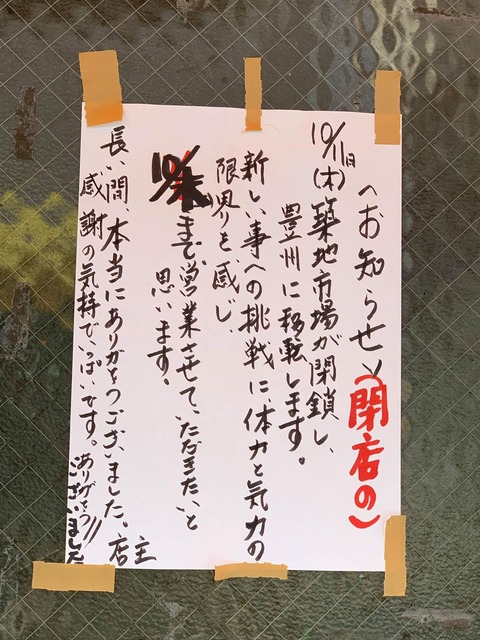 〈お知らせ〉(閉店の)
10/11日(木)築地市場が閉鎖し、
豊州に移転します。
新しい事への挑戦に、体力と気力の
限界りを感じ、
10/末まで営業させて、いただきたいと
思います。
長い間、本当にありがとうございました。店主
感謝の気持でいっぱいです。ありがとう//
ございました